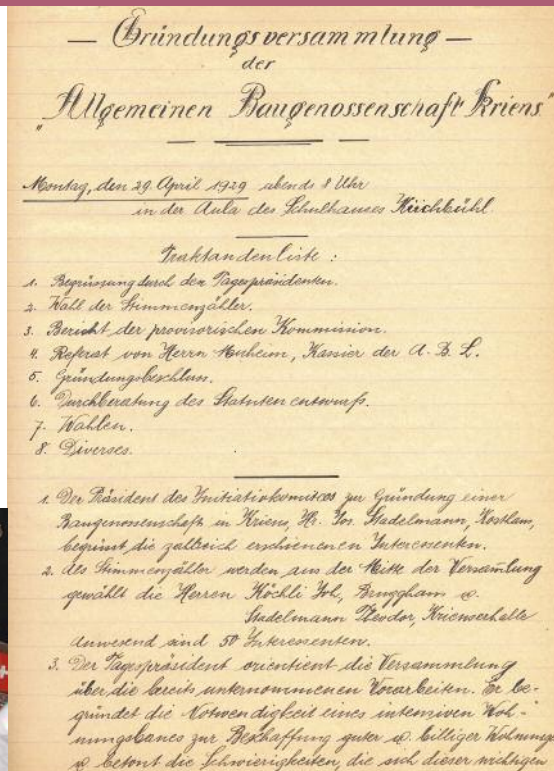 — Gründungsversammlung —
der
"Allgemeinen Baugenossenschaft Kriens"
Montag, den 29. April 1929 abends 8 Uhr
in der Aula des Schulhauses Kirchbühl.
Traktandenliste :
1. Begrüssung durch den Tagespräsidenten.
2. Wahl der Stimmenzähler.
3. Bericht der provisorischen Kommission.
4. Referat von Herrn Muheim, Kassier der A. B. L.
5. Gründungsbeschluss.
6. Durchberatung des Statutenentwurfs.
7. Wahlen.
8. Diverses.
1. Der Präsident des Initiativkomitees zur Gründung einer
Baugenossenschaft in Kriens, Hr. Jos. Stadelmann,
begrüsst die zahlreich erschienenen Interessenten.
2. Als Stimmenzähler werden aus der Mitte der Versammlung
gewählt die Herren Köchli Joh,
Stadelmann Theodor, Krienserhalle
Anwesend sind 50 Interessenten.
3. Der Tagespräsident orientiert die Versammlung
über die bereits unternommenen Vorarbeiten. Er be-
gründet die Notwendigkeit eines intensiven Woh-
nungsbaues zur Beschaffung guter u. billiger Wohnunge
u. betont die Schwierigkeiten, die sich dieser wichtigen